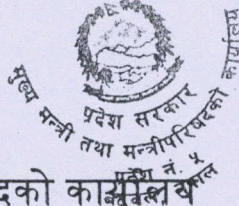 प्रदेश सरकार
मुख्य मन्त्री तथा मन्त्रीपरिषदको कार्यालय
प्रदेश नं. ५
दको कार्यालय